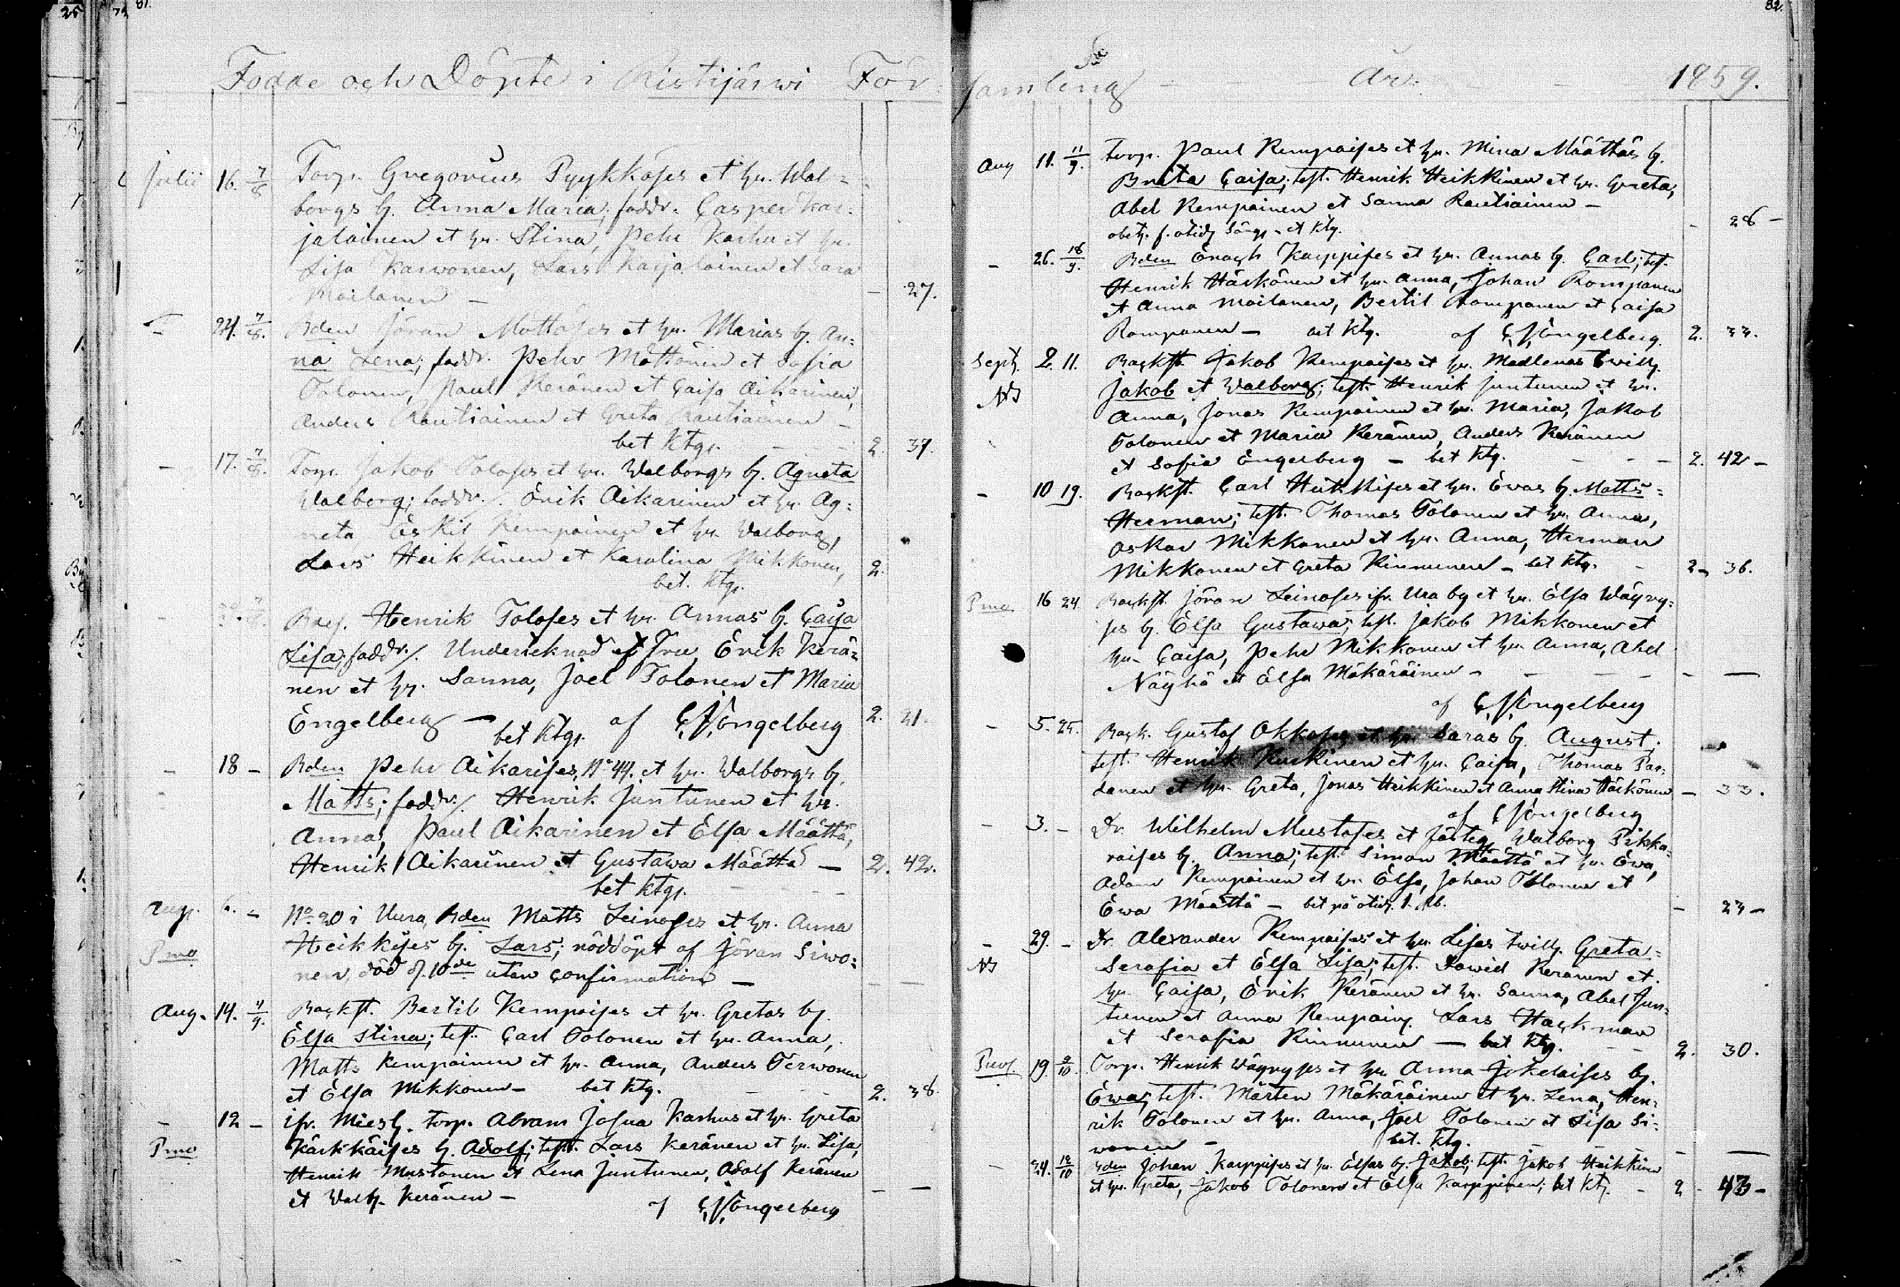 25
81.
Födde och Döpte i Ristijärwi För
Julii 16. 7/8 Torp. Gregorius Pyykköses et hu. Wal-
borgs b. Anna Maria; faddr. Casper Kar-
jalainen et hu. Stina, Pehr Karhu et hu.
Lisa Karwonen, Lars Karjalainen et Sara
Moilanen – – 27.
– 24. 7/8. Bden Jöran Mottöses et hu. Marias b. An-
na Lena; faddr. Pehr Möttönen et Sofia
Tolonen, Paul Keränen et Caisa Aikarinen,
Anders Rautiainen et Greta Rautiainen –
bet ktg. 2. 39.
– 17. 7/8. Torp. Jakob Toloses et hu. Walborgs b. Agneta
Walborg; faddr. Erik Aikarinen et hu. Ag-
neta Eskil Kempainen et hu. Walborg,
Lars Heikkinen et Karolina Mikkonen, 2.
bet. ktg.
Henrik Toloses et hu. Annas b. Caisa
Lisa; faddr. Undertecknad et Fru Erik Kerä-
nen et hu. Sanna, Joel Tolonen et Maria
Engelberg – af Engelberg 2. 21.
bet ktg.
– 18 – Bden Pehr Aikarises, No 44. et hu. Walborgs b.
Matts; faddr. Henrik Juntunen et hu.
Anna, Paul Aikarinen et Elsa Määttä,
Henrik Aikarinen et Gustawa Määttä – 2. 42.
bet ktg.
Aug. 6. – No 20 i Uura, Bden Matts Leinoses et hu. Anna
Pmo Heikkises b. Lars; nöddöpt af Jöran Siwo-
nen, död d. 10de utan confirmation –
Aug. 14. 4/9. Backst. Bertil Kempaises et hu. Gretas b.
Elsa Stina; test. Carl Tolonen et hu. Anna,
Matts Kempainen et hu. Anna, Anders Terwonen
et Elsa Mikkonen – bet ktg. 2. 38.
– 12 – ifr. Miesl. torp. Abram Josua Karhus et hu. Greta
Pmo Kärkkäises b. Adolf; test. Lars Keränen et hu. Lisa,
Henrik Mustonen et Lena Juntunen, Adolf Keränen
et Walb. Keränen –
af Engelberg
82.
samling År 1859.
Aug 11. 11/9. Torp. Paul Kempaises et hu. Mina Määttäs b.
Brita Caisa; test. Henrik Heikkinen et hu. Greta,
Abel Kempainen et Sanna Rautiainen –
– 28 –
– 26. 18/9. Bden Enoch Karppises et hu. Annas b. Carl; test.
Henrik Härkönen et hu. Anna, Johan Romppanen
et Anna Moilanen, Bertil Komppanen et Caisa
Romppanen – bet ktg. af Engelberg. 2. 33.
Sept. 2. 11. Backst. Jakob Kempaises et hu. Madlenas twill.
Jakob et Walborg; test. Henrik Juntunen et hu.
Anna, Jonas Kempainen et hu. Maria, Jakob
Tolonen et Maria Keränen, Anders Keränen
et Sofia Engelberg – bet ktg. 2. 42 –
– 10 19. Backst. Carl Heikkises et hu. Ewas b. Matts-
Herman; test. Thomas Tolonen et hu. Anna,
Oskar Mikkonen et hu. Anna, Herman
Mikkonen et Greta Kinnunen – bet ktg. 2 – 36.
Pmo 16 24 Backst. Jöran Leinoses ifr. Ura by et hu. Elsa Wäyry-
ses b. Elsa Gustawa; test. Jakob Mikkonen et
hu. Caisa, Pehr Mikkonen et hu. Anna, Abel
Näyhö et Elsa Mäkäräinen –
af Engelberg
– 5. 25. Back. Gustaf Okkoses et hu. Saras b. August.
test. Henrik Kurkinen et hu. Caisa, Thomas Par-
danen et hu. Greta, Jonas Heikkinen et Anna Stina Härkönen – 33.
af Engelberg
– 3. – Dr. Wilhelm Mustoses et fästeq. Walborg Pikka-
raises b. Anna; test. Simon Määttä et hu. Ewa,
Adam Kempainen et hu. Elsa, Johan Tolonen et
Ewa Määttä – – 23 –
– 29. – Dr. Alexander Kempaises et hu. Lisas twill. Greta-
Serafia et Elsa Lisa; test. Dawid Keränen et
hu. Caisa, Erik Keränen et hu. Sanna, Abel Jun-
tunen et Anna Kempain. Lars Hackman
et Serafia Kinnunen – bet ktg. 2. 30.
19. 2/10. Torp. Henrik Wäyryses et hu. Anna Jokelaises b.
Ewa; test. Mårten Mäkäräinen et hu. Lena, Hen-
rik Tolonen et hu. Anna, Joel Tolonen et Lisa Si-
wonen – bet. ktg.
– 24. 12/10 Bden Johan Karppises et hu. Elsas b. Jakob; test. Jakob Heikkinen
et hu. Greta, Jakob Tolonen et Elsa Karppinen; bet ktg. – 2 – 43 –